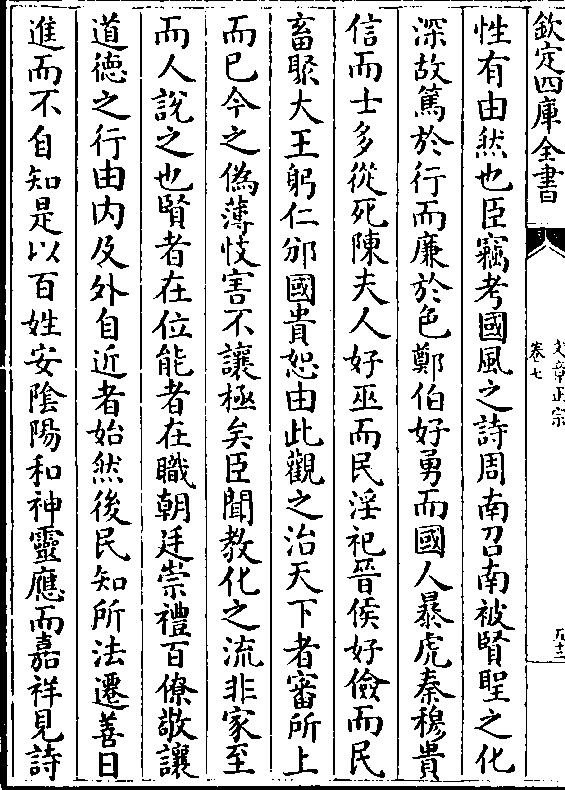 欽定四庫全書
文章正宗
卷七
性有由然也臣竊考國風之詩周南召南被賢聖之化
深故篤於行而廉於色鄭伯好勇而國人暴虎秦穆貴
信而士多從死陳夫人好巫而民淫祀晉侯好儉而民
畜聚大王躬仁邠國貴恕由此觀之治天下者審所上
而已今之偽薄忮害不讓極矣臣聞教化之流非家至
而人說之也賢者在位能者在職朝廷崇禮百僚敬讓
道德之行由内及外自近者始然後民知所法遷善日
進而不自知是以百姓安陰陽和神靈應而嘉祥見詩